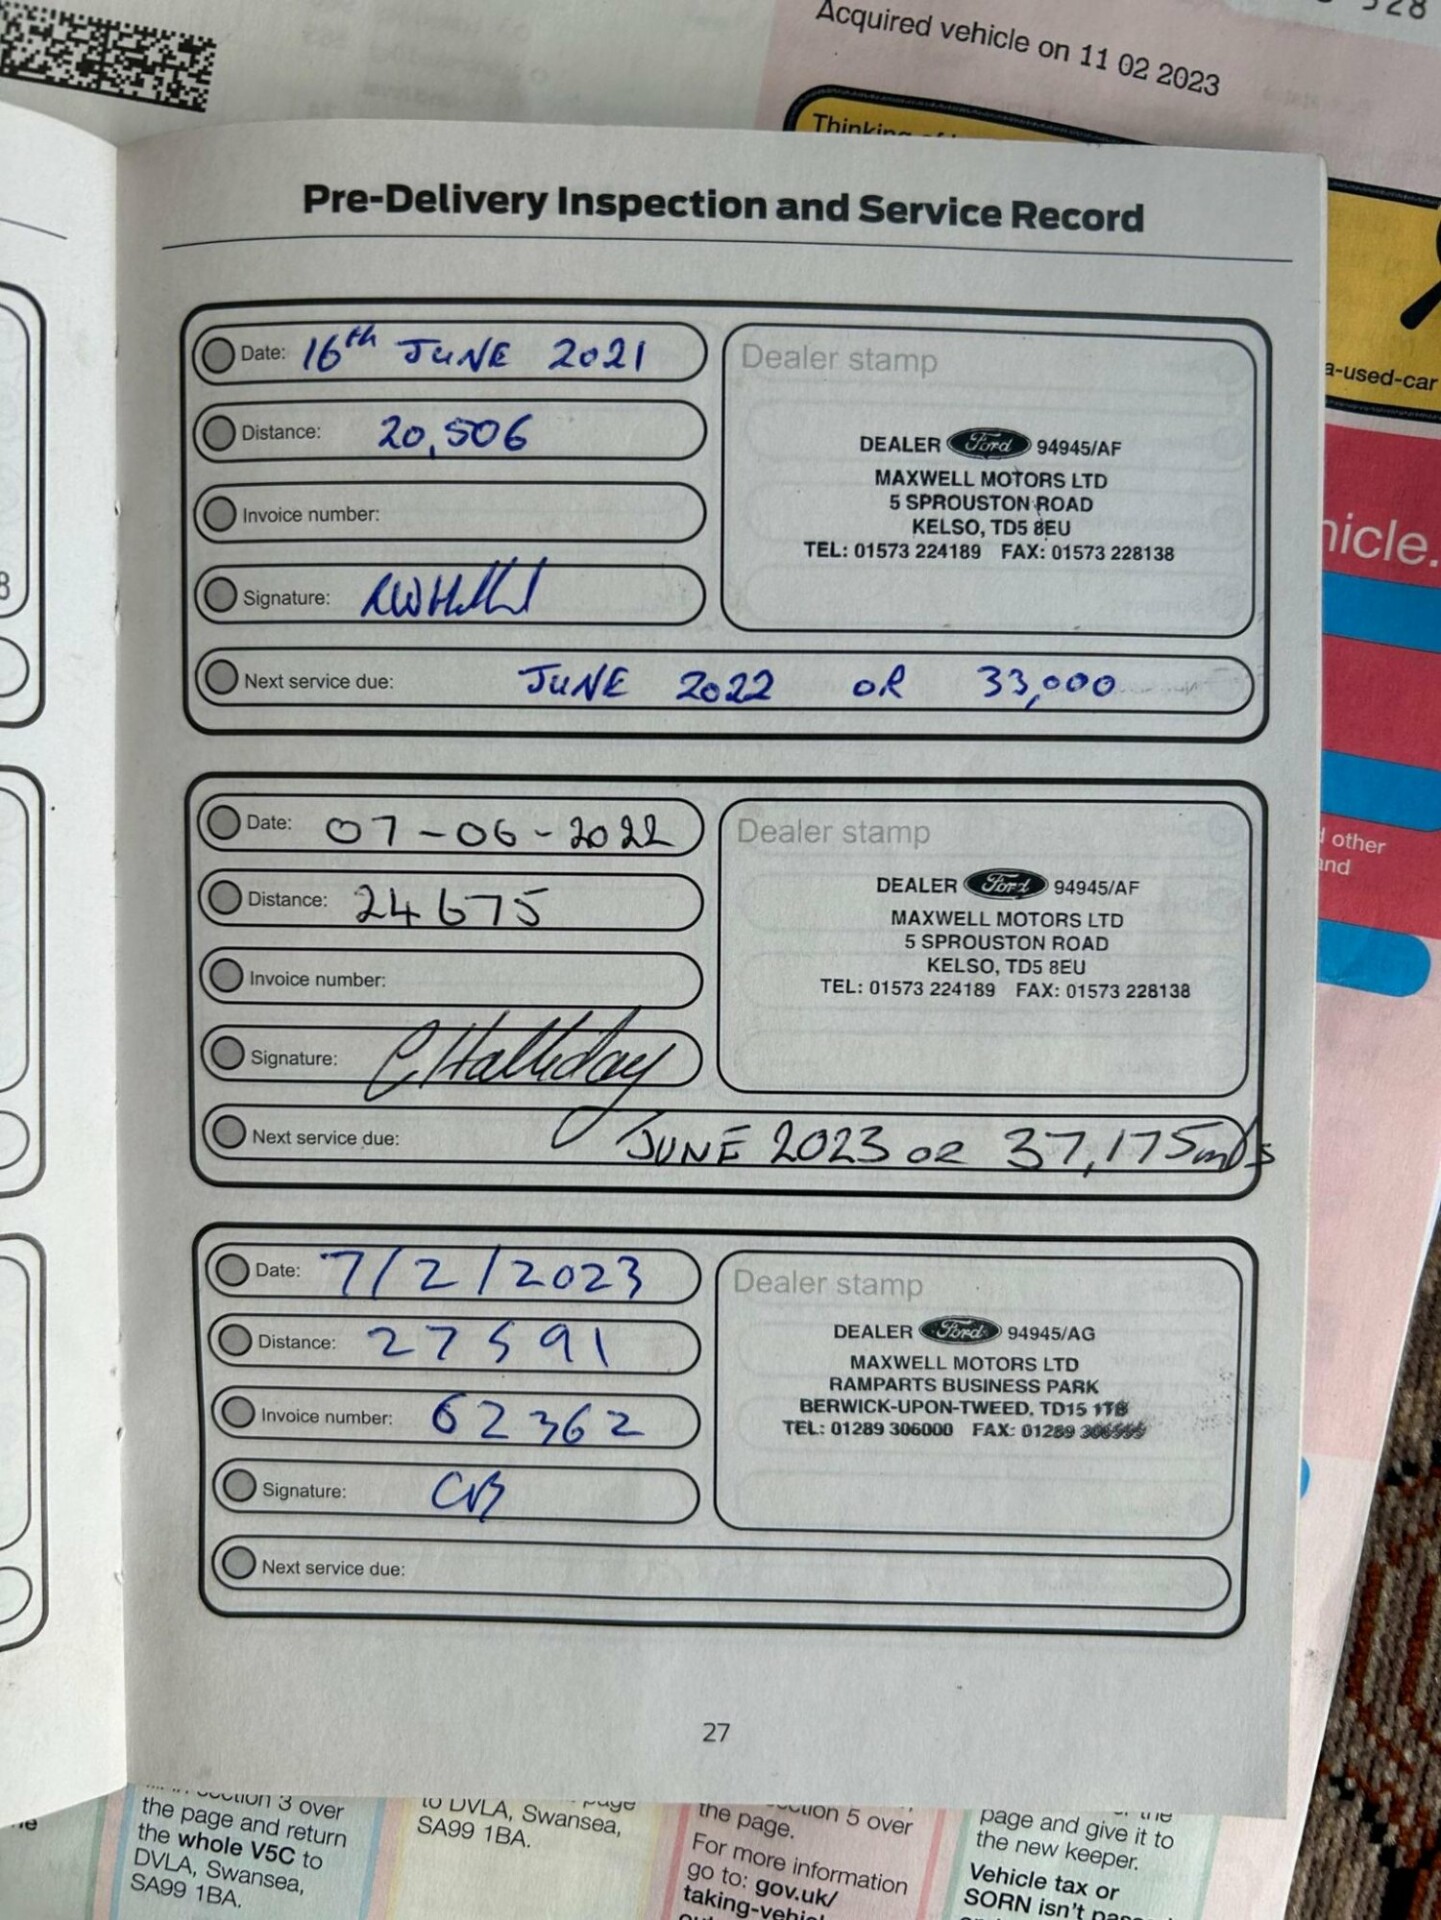 528
Acquired vehicle on 11 02 2023
Thinking of
a-used-car
hicle.
other
and
8
Pre-Delivery Inspection and Service Record
Date: 16th JUNE 2021
Distance: 20,506
Invoice number:
Signature:
Next service due: JUNE 2022 OR 33,000
Dealer stamp
DEALER Ford 94945/AF
MAXWELL MOTORS LTD
5 SPROUSTON ROAD
KELSO, TD5 8EU
TEL: 01573 224189 FAX: 01573 228138
Date: 07-06-2022
Distance: 24675
Invoice number:
Signature: C Halliday
Next service due: JUNE 2023 OR 37,175 mls
Dealer stamp
DEALER Ford 94945/AF
MAXWELL MOTORS LTD
5 SPROUSTON ROAD
KELSO, TD5 8EU
TEL: 01573 224189 FAX: 01573 228138
Date: 7/2/2023
Distance: 27591
Invoice number: 62362
Signature:
Next service due:
Dealer stamp
DEALER Ford 94945/AG
MAXWELL MOTORS LTD
RAMPARTS BUSINESS PARK
BERWICK-UPON-TWEED, TD15 1TB
TEL: 01289 306000 FAX: 01289
27
section 3 over
the page and return
the whole V5C to
DVLA, Swansea,
SA99 1BA.
page
to DVLA, Swansea,
SA99 1BA.
section 5 over
the page.
For more information
go to: gov.uk/
taking-vehicl
the
page and give it to
the new keeper.
Vehicle tax or
SORN isn't